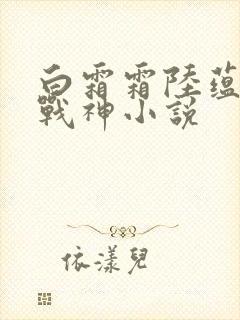 白霜霜陸蘊
戰神小說
依漾兒